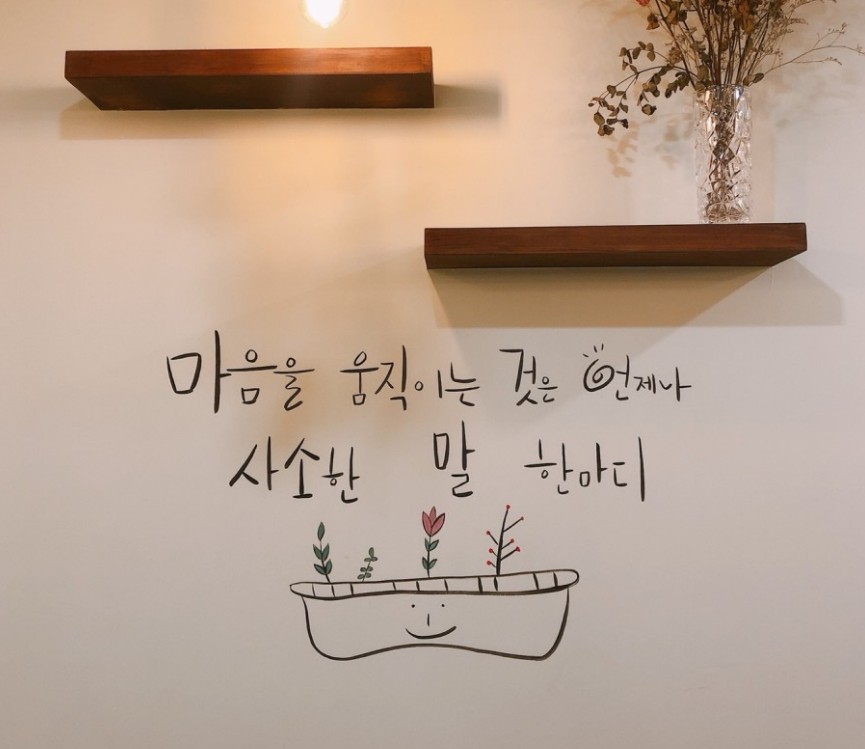 마음을 움직이는 것은 언제나
사소한 말 한마디